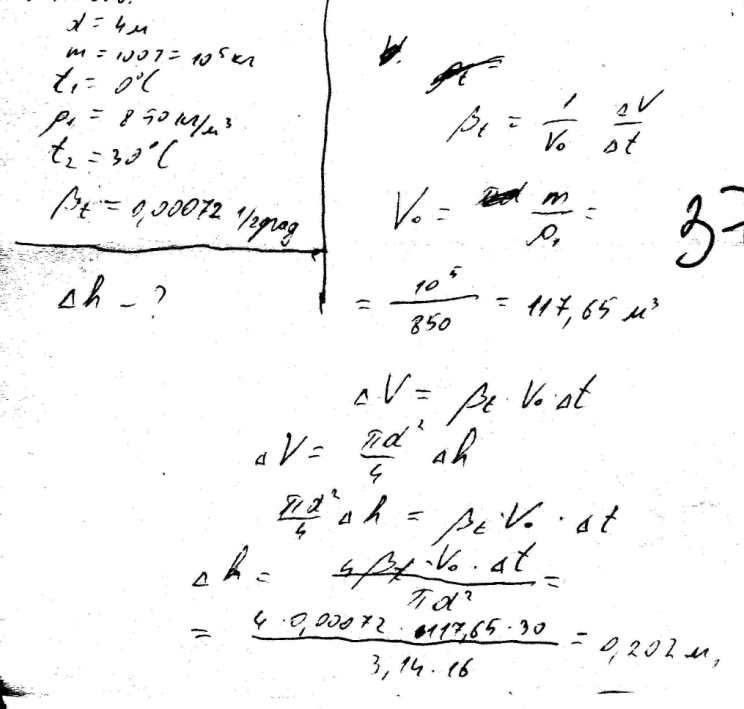 d = 4м
m = 100т = 10⁵ кг
t₁ = 0°C
ρ₁ = 850 кг/м³
t₂ = 30°C
βt = 0,00072 1/град
Δh – ?
βt = 1/V₀ ΔV/Δt
V₀ = m/ρ₁ =
= 10⁵/850 = 117,65 м³
ΔV = βt · V₀ · Δt
ΔV = πd²/4 Δh
πd²/4 Δh = βt · V₀ · Δt
Δh = 4βt · V₀ · Δt/πd² =
= 4 · 0,00072 · 117,65 · 30/3,14 · 16 = 0,202 м,